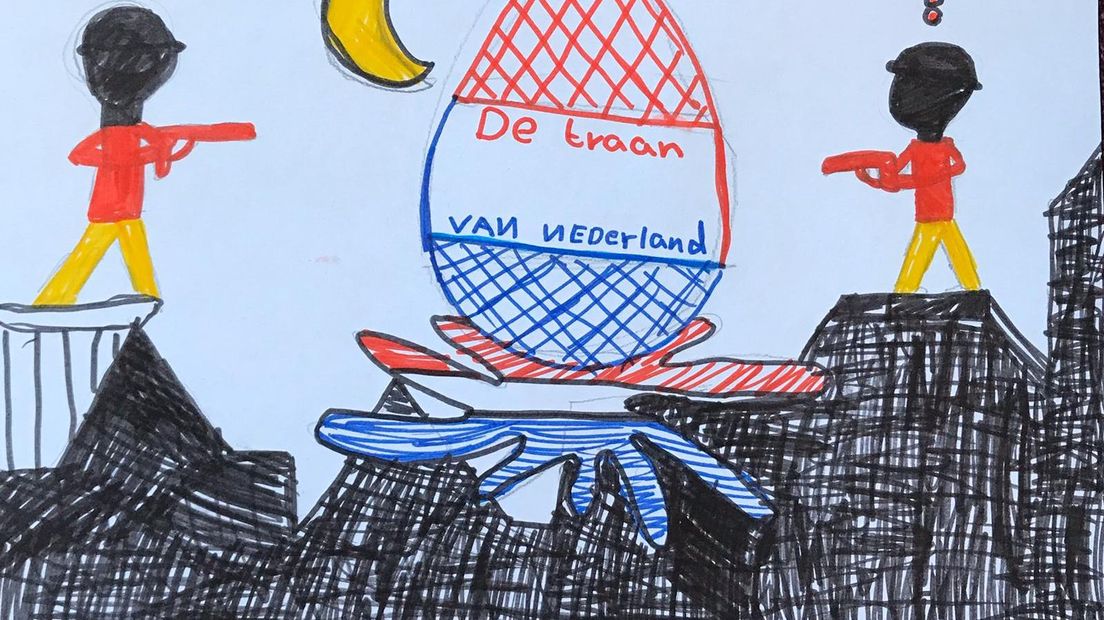 De traan
VAN NEDerland